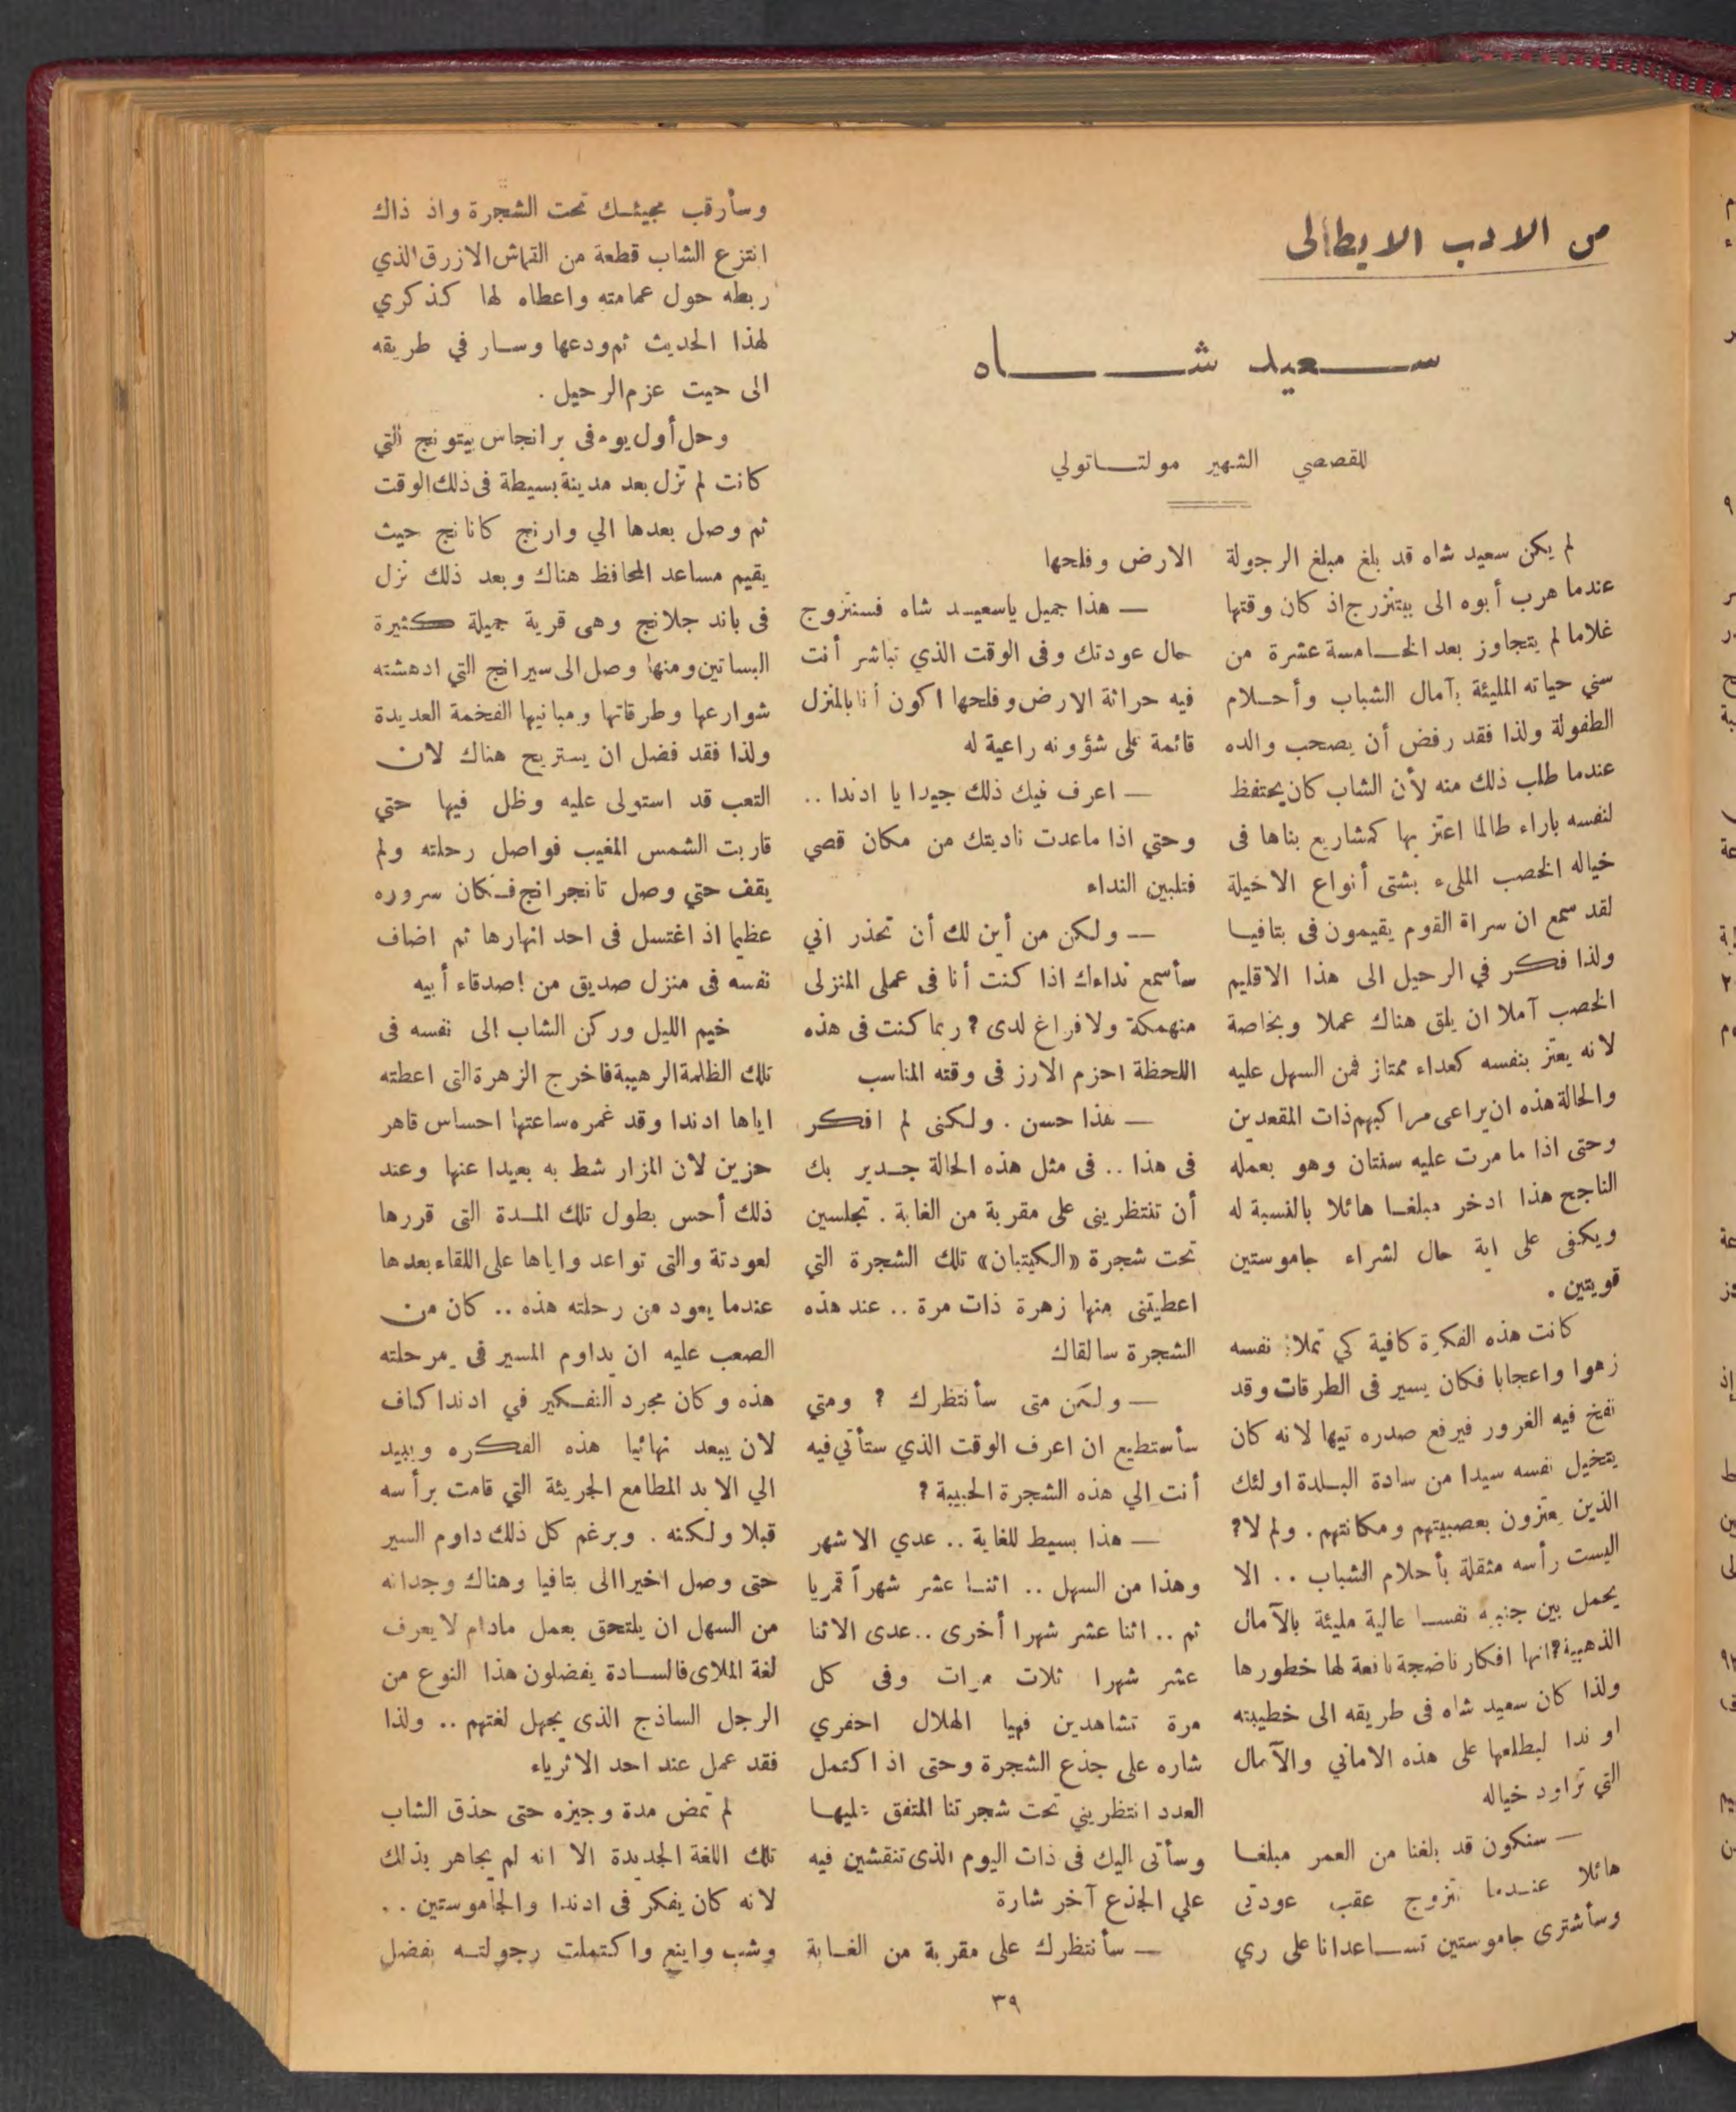 من الادب الايطالى
سعيد شاه
للقصصي الشهير مولتاتولي
لم يكن سعيد شاه قد بلغ مبلغ الرجولة
عندما هرب أبوه الى بيتنزرج اذ كان وقتها
غلاما لم يتجاوز بعد الخامسة عشرة من
سني حياته المليئة بآمال الشباب وأحلام
الطفولة ولذا فقد رفض أن يصحب والده
عندما طلب ذلك منه لأن الشاب كان يحتفظ
لنفسه باراء طالما اعتز بها كمشاريع بناها فى
خياله الخصب الملىء بشتى أنواع الاخيلة
لقد سمع ان سراة القوم يقيمون فى بتافيا
ولذا فكر في الرحيل الى هذا الاقليم
الخصب آملا ان يلق هناك عملا وبخاصة
لانه يعتز بنفسه كعداء ممتاز فمن السهل عليه
والحالة هذه ان يراعى مراكبهم ذات المقعدين
وحتى اذا ما مرت عليه سنتان وهو بعمله
الناجح هذا ادخر مبلغا هائلا بالنسبة له
ويكفى على اية حال لشراء جاموستين
قويتين .
كانت هذه الفكرة كافية كي تملأ نفسه
زهوا واعجابا فكان يسير فى الطرقات وقد
نفخ فيه الغرور فيرفع صدره تيها لانه كان
يتخيل نفسه سيدا من سادة البلدة اولئك
الذين يعتزون بعصبيتهم ومكانتهم . ولم لا؟
اليست رأسه مثقلة بأحلام الشباب .. الا
يحمل بين جنبيه نفسا عالية مليئة بالآمال
الذهبية؟ انها افكار ناضجة نافعة لها خطورها
ولذا كان سعيد شاه فى طريقه الى خطيبته
اوندا ليطلعها على هذه الاماني والآمال
التي تراود خياله
— سنكون قد بلغنا من العمر مبلغا
هائلا عندما نتزوج عقب عودتى
وسأشترى جاموستين تساعدانا على ري
الارض وفلحها
— هذا جميل ياسعيد شاه فسنتزوج
حال عودتك وفى الوقت الذي تباشر أنت
فيه حراثة الارض وفلحها اكون أنا بالمنزل
قائمة على شؤونه راعية له
— اعرف فيك ذلك جيدا يا ادندا ..
وحتي اذا ماعدت ناديتك من مكان قصي
فتلبين النداء
— ولكن من أين لك أن تحذر اني
سأسمع نداءك اذا كنت أنا فى عملى المنزلى
منهمكة ولا فراغ لدى ؟ ربما كنت فى هذه
اللحظة احزم الارز فى وقته المناسب
— هذا حسن . ولكنى لم افكر
فى هذا .. فى مثل هذه الحالة جدير بك
أن تنتظرينى على مقربة من الغابة . تجلسين
تحت شجرة «الكيتبان» تلك الشجرة التي
اعطيتنى منها زهرة ذات مرة .. عند هذه
الشجرة سالقاك
— ولكن متى سأنتظرك ؟ ومتي
سأستطيع ان اعرف الوقت الذي ستأتى فيه
أنت الي هذه الشجرة الحبيبة ؟
— هذا بسيط للغاية .. عدي الاشهر
وهذا من السهل .. اثنا عشر شهراً قمريا
ثم .. اثنا عشر شهرا أخرى .. عدى الاثنا
عشر شهرا ثلات مرات وفى كل
مرة تشاهدين فهيا الهلال احفري
شاره على جذع الشجرة وحتى اذ اكتمل
العدد انتظريني تحت شجرتنا المتفق عليها
وسأتى اليك فى ذات اليوم الذى تنقشين فيه
علي الجذع آخر شارة
— سأنتظرك على مقربة من الغابة
وسأرقب مجيئك تحت الشجرة واذ ذاك
انتزع الشاب قطعة من القماش الازرق الذي
ربطه حول عمامته واعطاه لها كذكري
لهذا الحديث ثم ودعها وسار في طريقه
الى حيت عزم الرحيل .
وحل أول يوم فى برانجاس بيتونج التي
كانت لم تزل بعد مدينة بسيطة فى ذلك الوقت
ثم وصل بعدها الي وارنج كانانج حيث
يقيم مساعد المحافظ هناك وبعد ذلك نزل
فى باند جلانج وهى قرية جميلة كثيرة
البساتين ومنها وصل الى سيرانج التي ادهشته
شوارعها وطرقاتها ومبانيها الفخمة العديدة
ولذا فقد فضل ان يستريح هناك لان
التعب قد استولى عليه وظل فيها حتي
قاربت الشمس المغيب فواصل رحلته ولم
يقف حتي وصل تانجرانج فكان سروره
عظيما اذ اغتسل فى احد انهارها ثم اضاف
نفسه فى منزل صديق من اصدقاء أبيه
خيم الليل وركن الشاب الى نفسه فى
تلك الظلمة الرهيبة فاخرج الزهرة التى اعطته
اياها ادندا وقد غمره ساعتها احساس قاهر
حزين لان المزار شط به بعيدا عنها وعند
ذلك أحس بطول تلك المدة التى قررها
لعودتة والتى تواعد واياها على اللقاء بعدها
عندما يعود من رحلته هذه .. كان من
الصعب عليه ان يداوم المسير فى مرحلته
هذه وكان مجرد التفكير في ادندا كاف
لان يبعد نهائيا هذه الفكره ويبيد
الي الابد المطامع الجريئة التي قامت برأسه
قبلا ولكنه . وبرغم كل ذلك داوم السير
حتى وصل اخيرا الى بتافيا وهناك وجد انه
من السهل ان يلتحق بعمل مادام لا يعرف
لغة الملاى فالسادة يفضلون هذا النوع من
الرجل الساذج الذى يجهل لغتهم .. ولذا
فقد عمل عند احد الاثرياء
لم تمض مدة وجيزه حتى حذق الشاب
تلك اللغة الجديدة الا انه لم يجاهر بذلك
لانه كان يفكر فى ادندا والجاموستين ..
وشب واينع واكتملت رجولته بفضل
٣٩